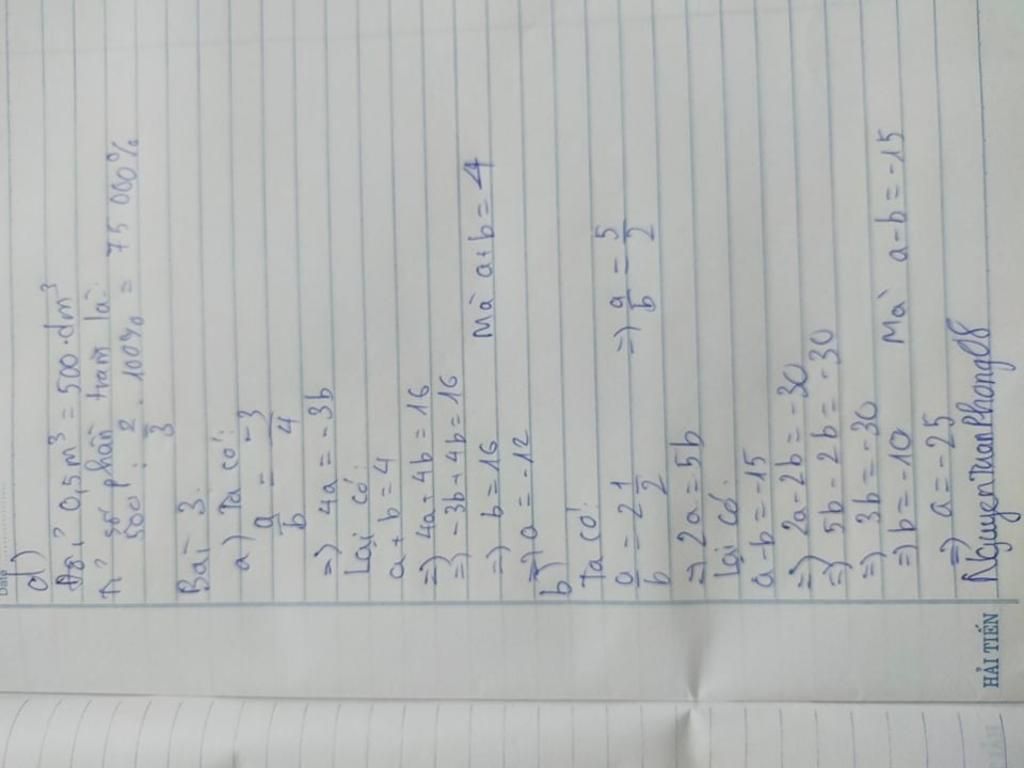 Date
d)
Đổi 0,5m³ = 500 dm³
Tỉ số phần trăm là:
500 : 2/3 . 100% = 75 000%
Bài 3:
a) Ta có:
a/b = -3/4
=> 4a = -3b
Lại có:
a + b = 4
=> 4a + 4b = 16
=> -3b + 4b = 16
=> b = 16 Mà a + b = 4
=> a = -12
b)
Ta có:
a/b = 2 1/2 => a/b = 5/2
=> 2a = 5b
Lại có:
a - b = -15
=> 2a - 2b = -30
=> 5b - 2b = -30
=> 3b = -30
=> b = -10 Mà a - b = -15
=> a = -25
NguyenTranThanhPhong08
HẢI TIẾN